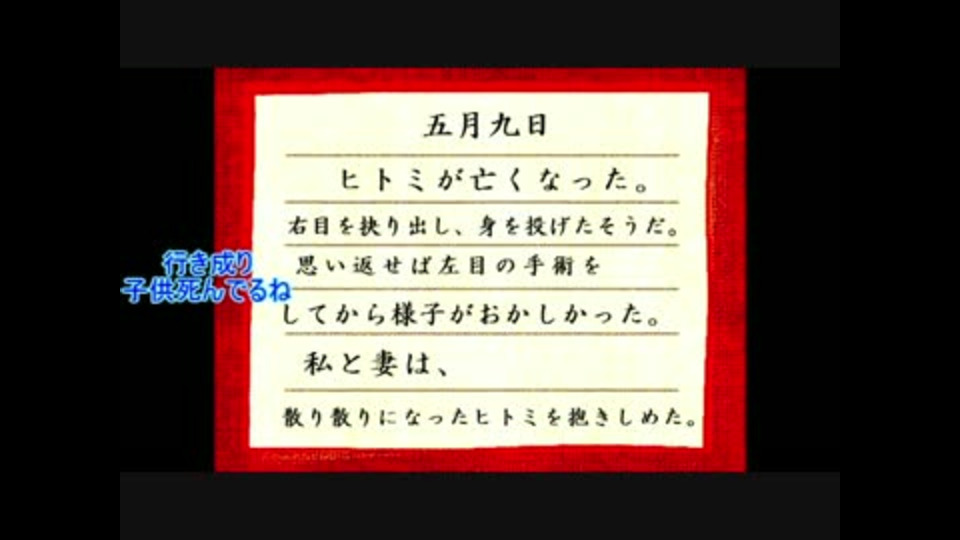 五月九日
ヒトミが亡くなった。
右目を抉り出し、身を投げたそうだ。
思い返せば左目の手術を
してから様子がおかしかった。
私と妻は、
散り散りになったヒトミを抱きしめた。
行き成り
子供死んでるね